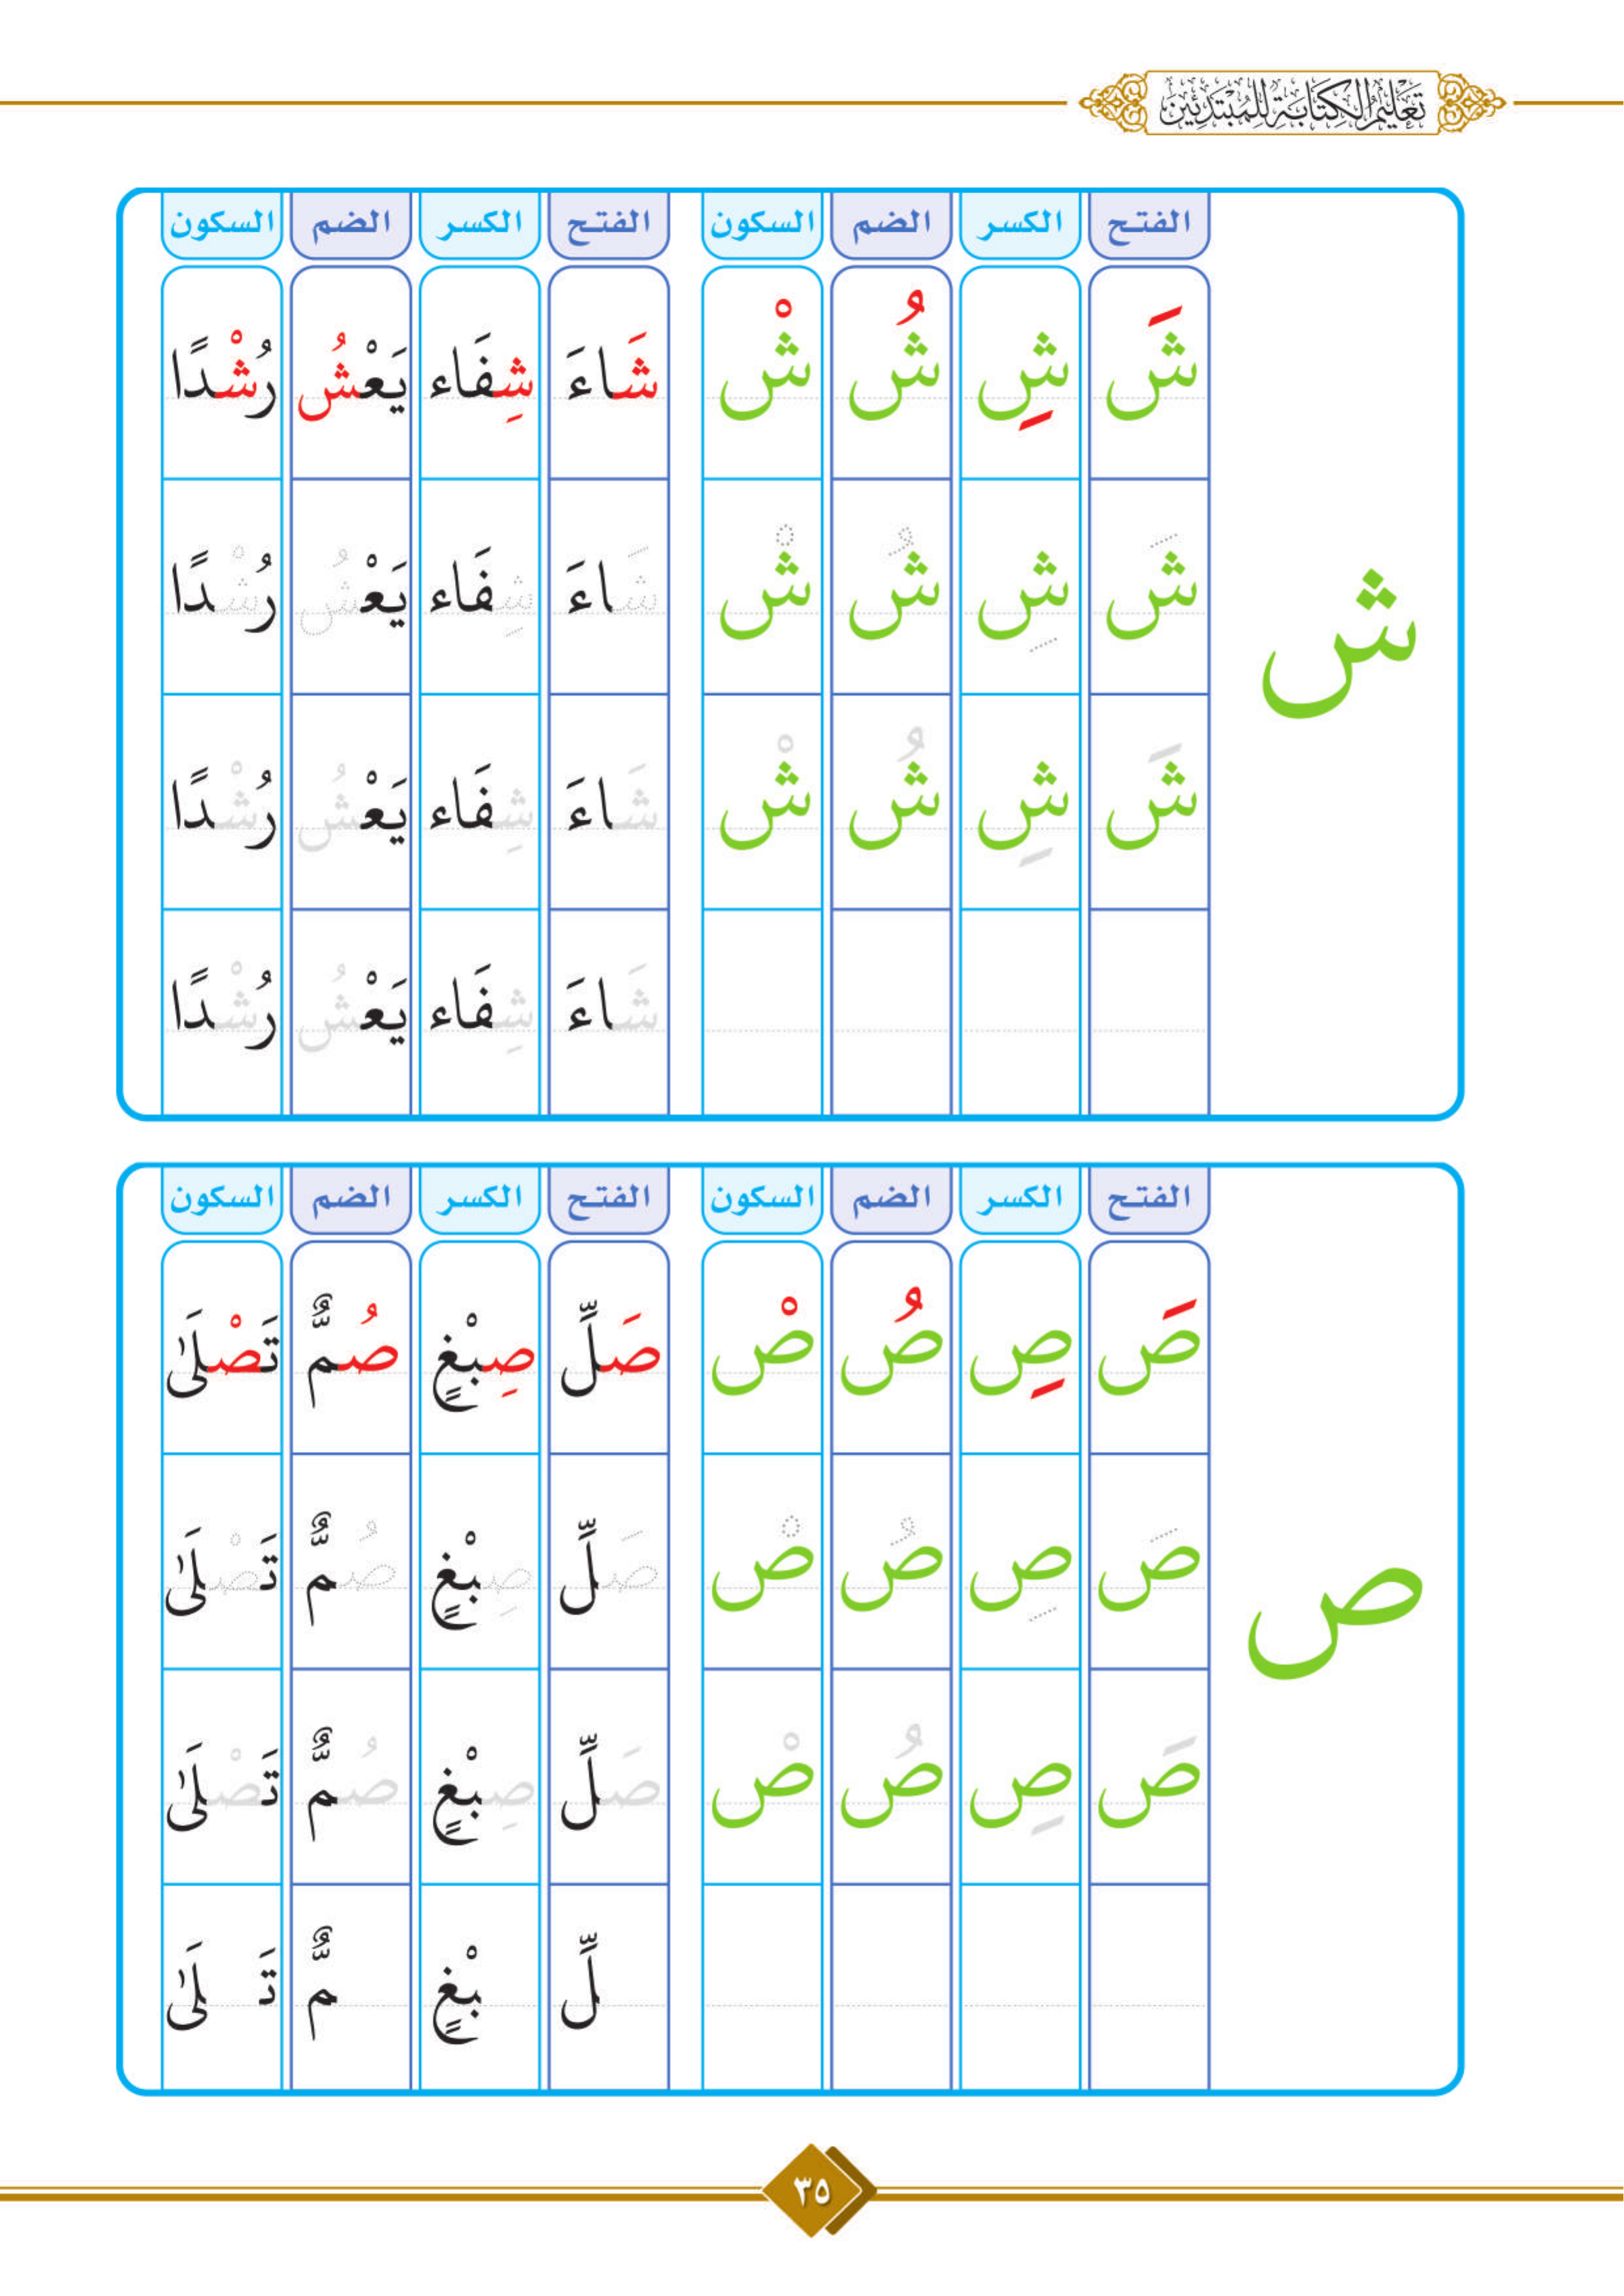 تَعْلِيمُ الْكِتَابَةِ لِلْمُبْتَدِئِينَ
الفتح الكسر الضم السكون الفتح الكسر الضم السكون
شَ شِ شُ شْ شَاءَ شِفَاء يَعْشُ رُشْدًا
ش
شَ شِ شُ شْ شَاءَ شِفَاء يَعْشُ رُشْدًا
شَ شِ شُ شْ شَاءَ شِفَاء يَعْشُ رُشْدًا
شَاءَ شِفَاء يَعْشُ رُشْدًا
الفتح الكسر الضم السكون الفتح الكسر الضم السكون
صَ صِ صُ صْ صَلِّ صِبْغٍ صُمٌّ تَصْلَىٰ
ص
صَ صِ صُ صْ صَلِّ صِبْغٍ صُمٌّ تَصْلَىٰ
صَ صِ صُ صْ صَلِّ صِبْغٍ صُمٌّ تَصْلَىٰ
لِّ بْغٍ مٌّ تَ لَىٰ
٣٥